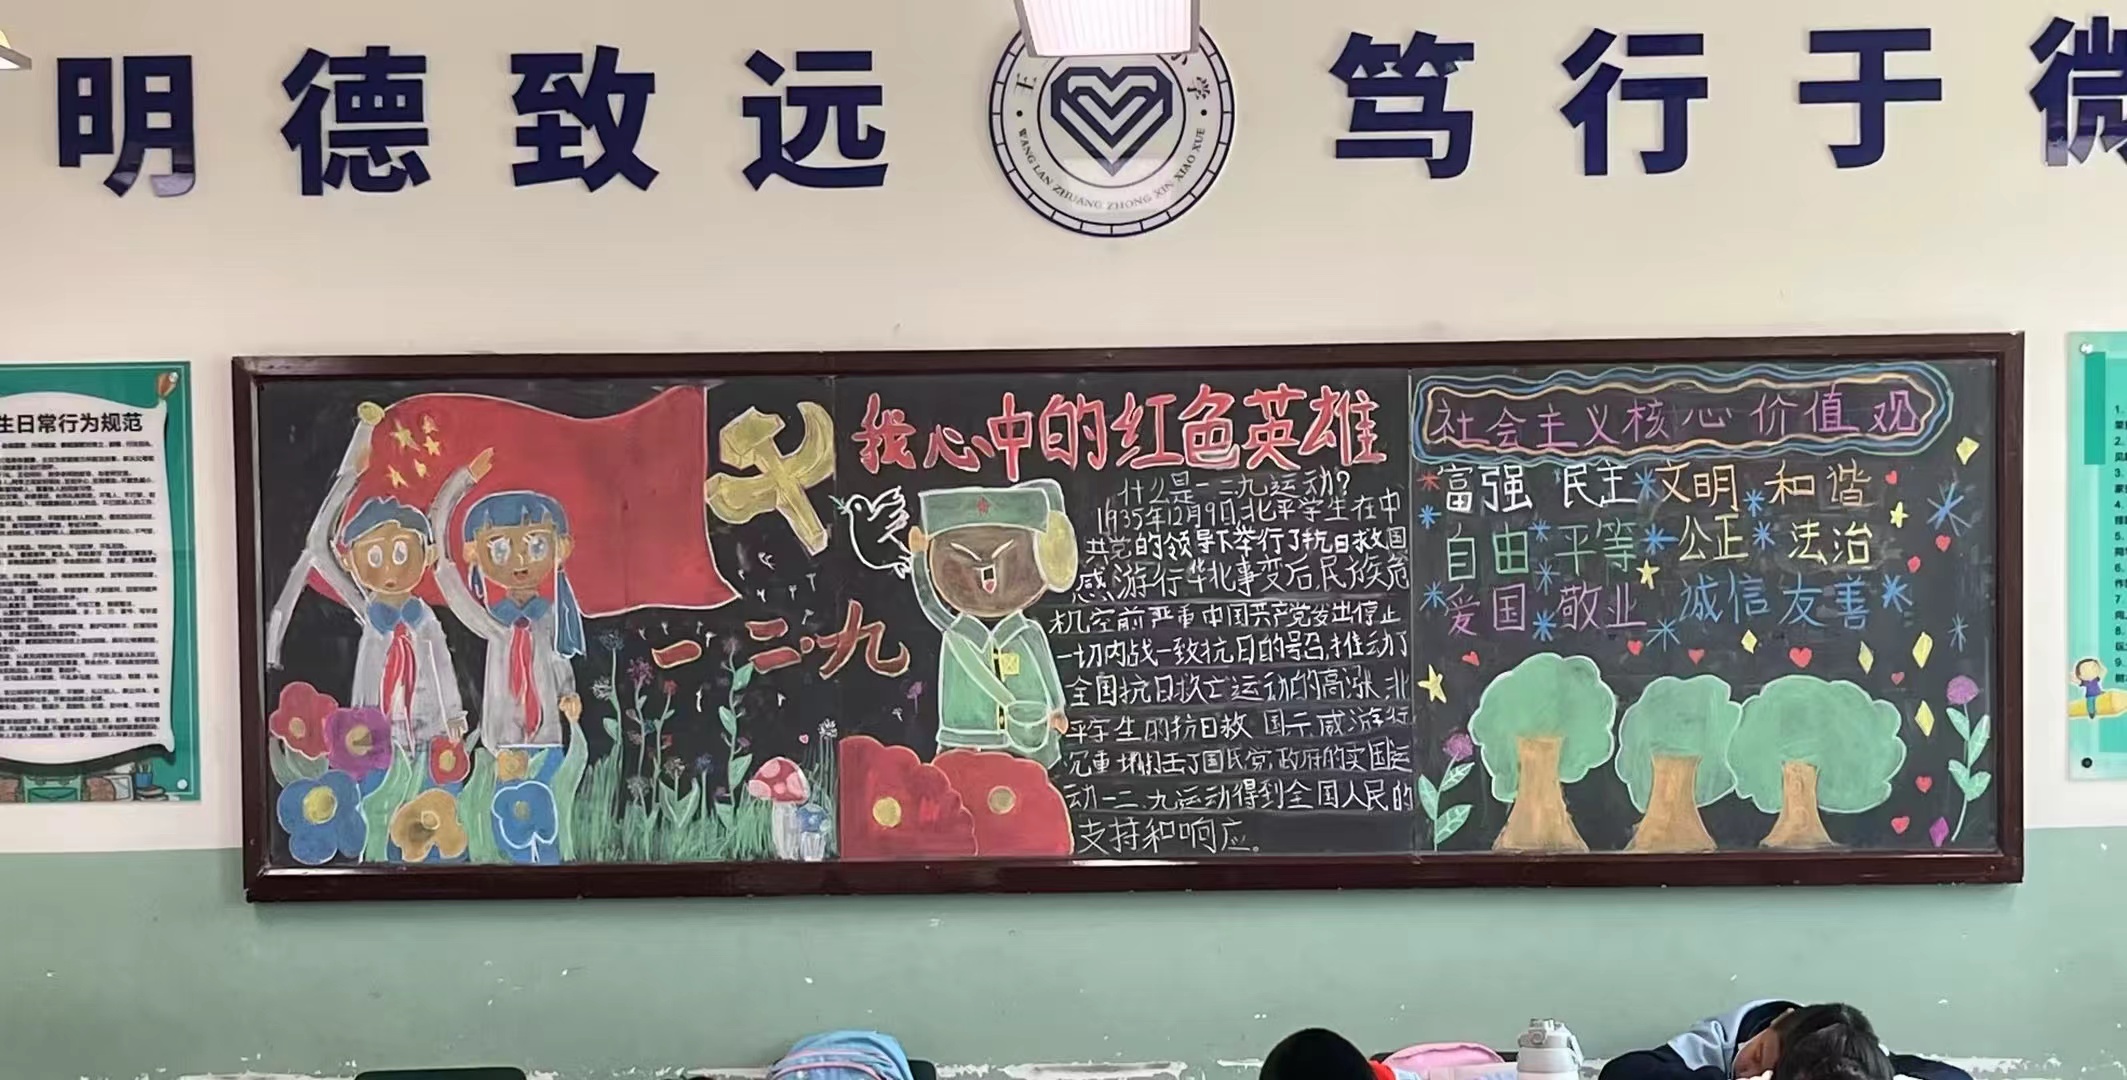 明德致远
笃行于微
王
小学
WANG LAN ZHUANG ZHONG XIN XIAO XUE
生日常行为规范
一二·九
我心中的红色英雄
什么是一二九运动?
1935年12月9日,北平学生在中
共党的领导下举行了抗日救国
感游行华北事变后,民族危
机空前严重中国共产党发出停止
一切内战一致抗日的号召,推动了
全国抗日救亡运动的高涨,北
平学生的抗日救国示威游行
沉重地打击了国民党政府的卖国运
动一二、九运动得到全国人民的
支持和响应。
社会主义核心价值观
富强 民主 文明 和谐
自由 平等 公正 法治
爱国 敬业 诚信 友善